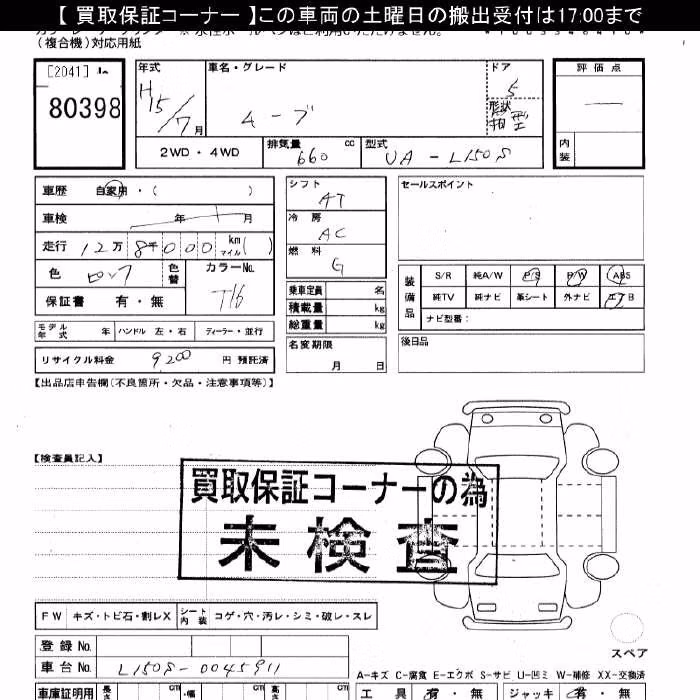 【 買取保証コーナー 】この車両の土曜日の搬出受付は17:00まで
(複合機)対応用紙
[2041]
80398
年式 車名・グレード ドア 評価点
H15/7月 ムーブ 5
形状 箱型
2WD・4WD 排気量 660 cc 型式 UA-L150S
内装
車歴 自家用・( )
シフト AT
セールスポイント
車検 年 月
冷房 AC
走行 12万8千000 km マイル ( )
燃料 G
色 色替 カラーNo. T16
装備品 S/R 純A/W P/S P/W ABS
保証書 有・無
乗車定員 名
純TV 純ナビ 革シート 外ナビ エアB
積載量 kg
ナビ型番:
総重量 kg
モデル年式 年 ハンドル 左・右 ディーラー・並行
リサイクル料金 9200 円 預託済
名変期限 月 日
後日品
【出品店申告欄(不良箇所・欠品・注意事項等)】
【検査員記入】
買取保証コーナーの為
未検査
FW キズ・トビ石・割レX シート内装 コゲ・穴・汚レ・シミ・破レ・スレ
スペア
登録No.
車台No. L150S-0045911
A-キズ C-腐食 E-エクボ S-サビ U-凹ミ W-補修 XX-交換済
車庫証明用 長さ cm 幅 cm 高さ cm
工具 有・無 ジャッキ 有・無